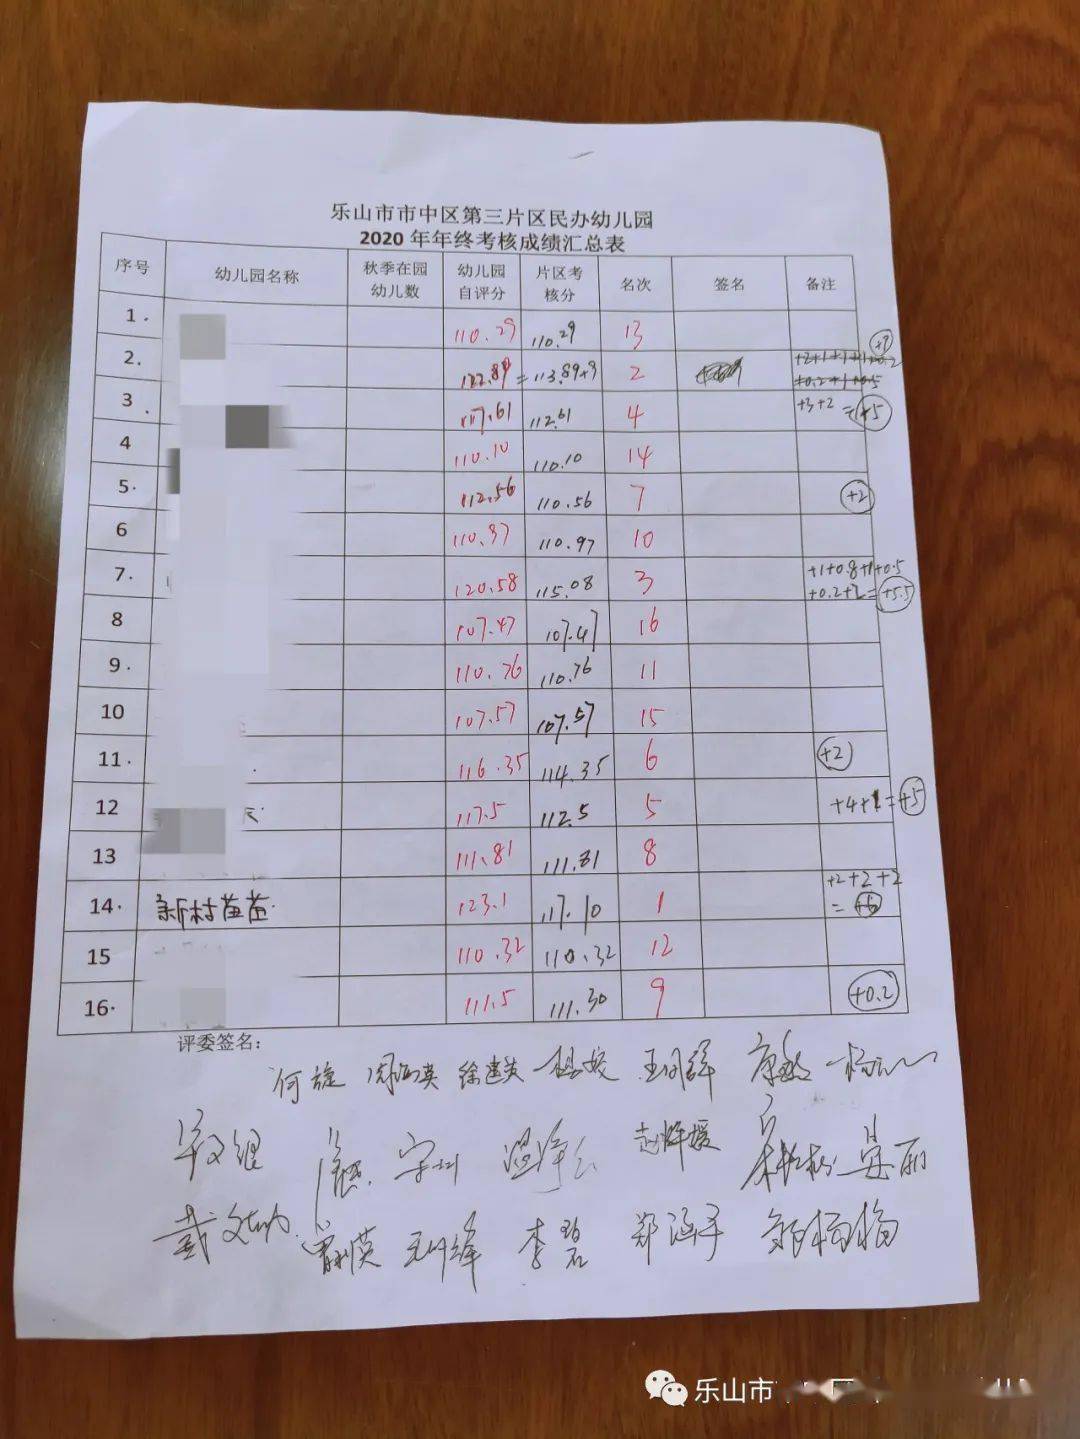 乐山市市中区第三片区民办幼儿园
2020 年年终考核成绩汇总表
序号 幼儿园名称 秋季在园幼儿数 幼儿园自评分 片区考核分 名次 签名 备注
1. 110.29 110.29 13
2. 122.89 = 113.89+9 2 +2+1+1+1+0.2 +0.2+1+0.5 +9
3. 117.61 112.61 4 +3+2=+5
4 110.10 110.10 14
5. 112.56 110.56 7 +2
6 110.97 110.97 10
7. 120.58 115.08 3 +1+0.8+1+0.5 +0.2+2=+5.5
8 107.47 107.47 16
9. 110.76 110.76 11
10 107.57 107.57 15
11. 116.35 114.35 6 +2
12 117.5 112.5 5 +4+1=+5
13 111.81 111.81 8
14. 新村苗苗. 123.1 117.10 1 +2+2+2=+6
15 110.32 110.32 12
16. 111.5 111.30 9 +0.2
评委签名:
何旋 徐建英 康
宋 温 赵 丽
戴 李碧 郑涵予 杨梅
乐山市